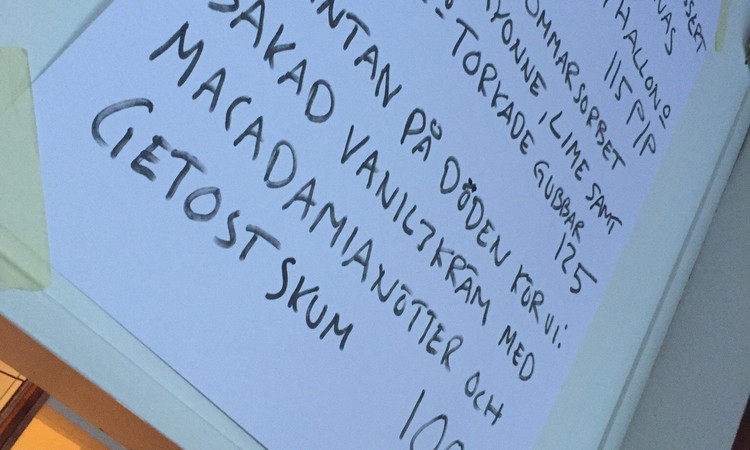 SSERT
NAS
HALLON?
115 P/P
OMMARSORBET
YONNE, LIME SAMT
-TORKADE GUBBAR
125
NTAN PÅ DÖDEN KÖR VI:
BAKAD VANILJKRÄM MED
MACADAMIANÖTTER OCH
GETOSTSKUM
100